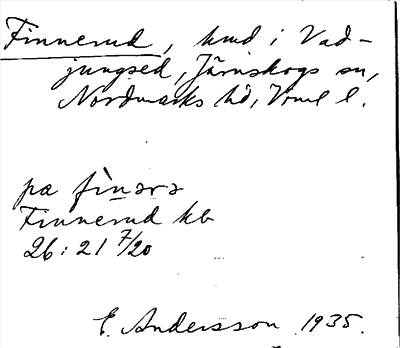 Finnerud, hmd i Vad-
jungsed, Järnskogs sn,
Nordmarks hd, Vrml l.
pæ fìnərə
Finnerud kb
26:21 7/20
E. Andersson 1935.